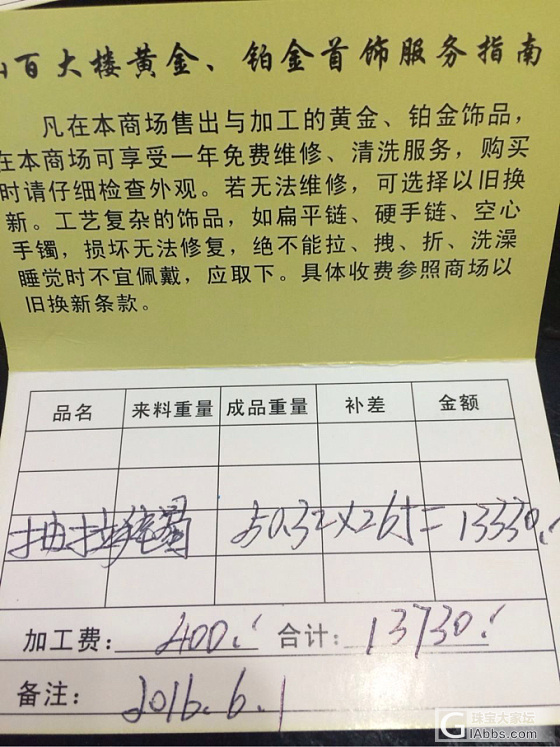 百大楼黄金、铂金首饰服务指南
凡在本商场售出与加工的黄金、铂金饰品，
在本商场可享受一年免费维修、清洗服务，购买
时请仔细检查外观。若无法维修，可选择以旧换
新。工艺复杂的饰品，如扁平链、硬手链、空心
手镯，损坏无法修复，绝不能拉、拽、折、洗澡
睡觉时不宜佩戴，应取下。具体收费参照商场以
旧换新条款。
品名 来料重量 成品重量 补差 金额
抽拉 50.32×265=13330.
加工费：400. 合计：13730.
备注：2016.6.1
珠宝大家坛
GIAbbs.com